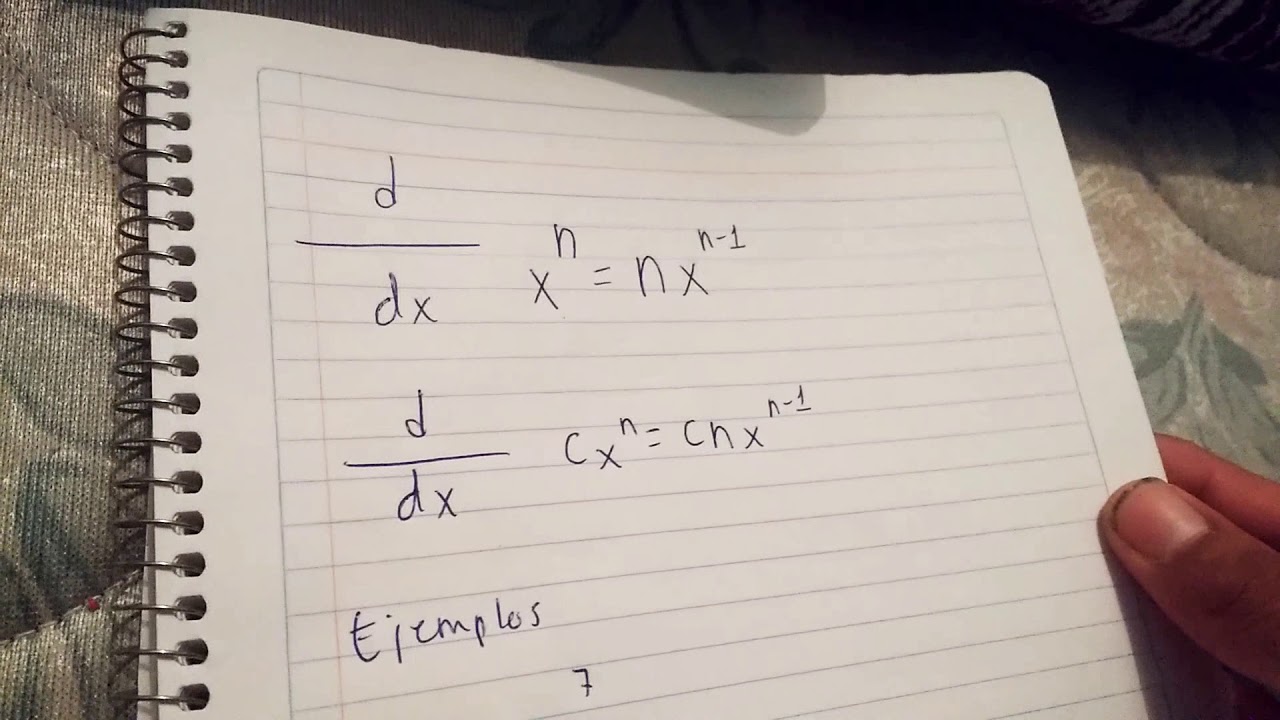 d/dx xⁿ = nxⁿ⁻¹
d/dx cxⁿ = cnxⁿ⁻¹
Ejemplos
7